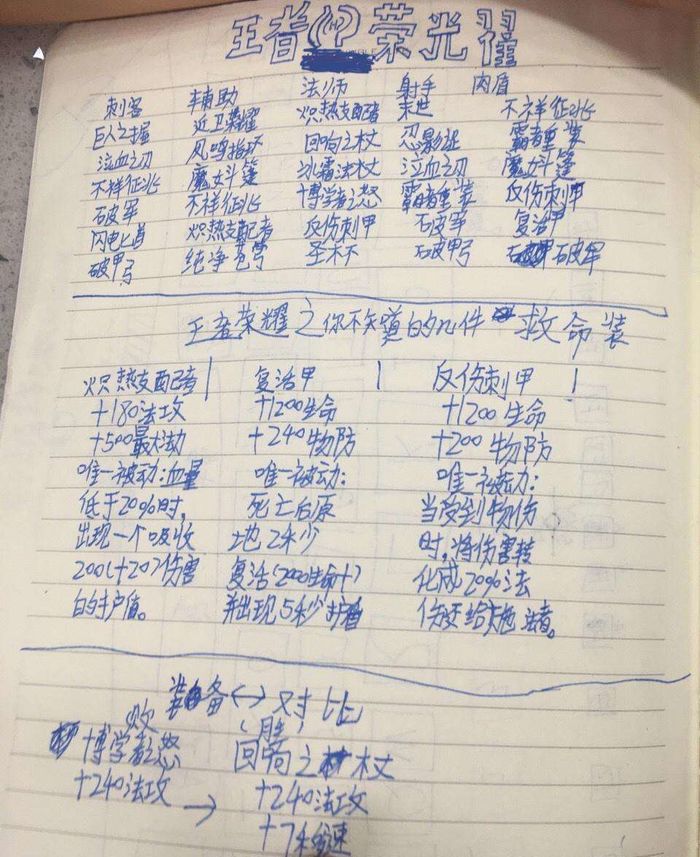 王者 荣光耀
刺客 辅助 法师 射手 肉盾
巨人之握 近卫荣耀 炽热支配者 末世 不祥征兆
泣血之刃 凤鸣指环 回响之杖 忍影 霸者重装
不祥征兆 魔女斗篷 冰霜法杖 泣血之刃 魔女斗篷
石破军 不祥征兆 博学者之怒 霸者重装 反伤刺甲
闪电匕首 炽热支配者 反伤刺甲 石破军 复活甲
破甲弓 纯净苍穹 圣杯 石破甲弓 石破军
王者荣耀之你不知道的几件 救命装
炽热支配者 复活甲 反伤刺甲
+180法攻 +1200生命 +1200生命
+500最大法力 +240物防 +200物防
唯一被动:血量 唯一被动: 唯一被动:
低于20%时, 死亡后原 当受到物伤
出现一个吸收 地2秒 时,将伤害转
200(+20)伤害 复活(2000生命+) 化成20%法
的护盾值。 并出现5秒护盾 伤反给施法者。
装备<->对比
败 (胜)
博学者之怒 回响之杖
+240法攻 → +240法攻
+7移速